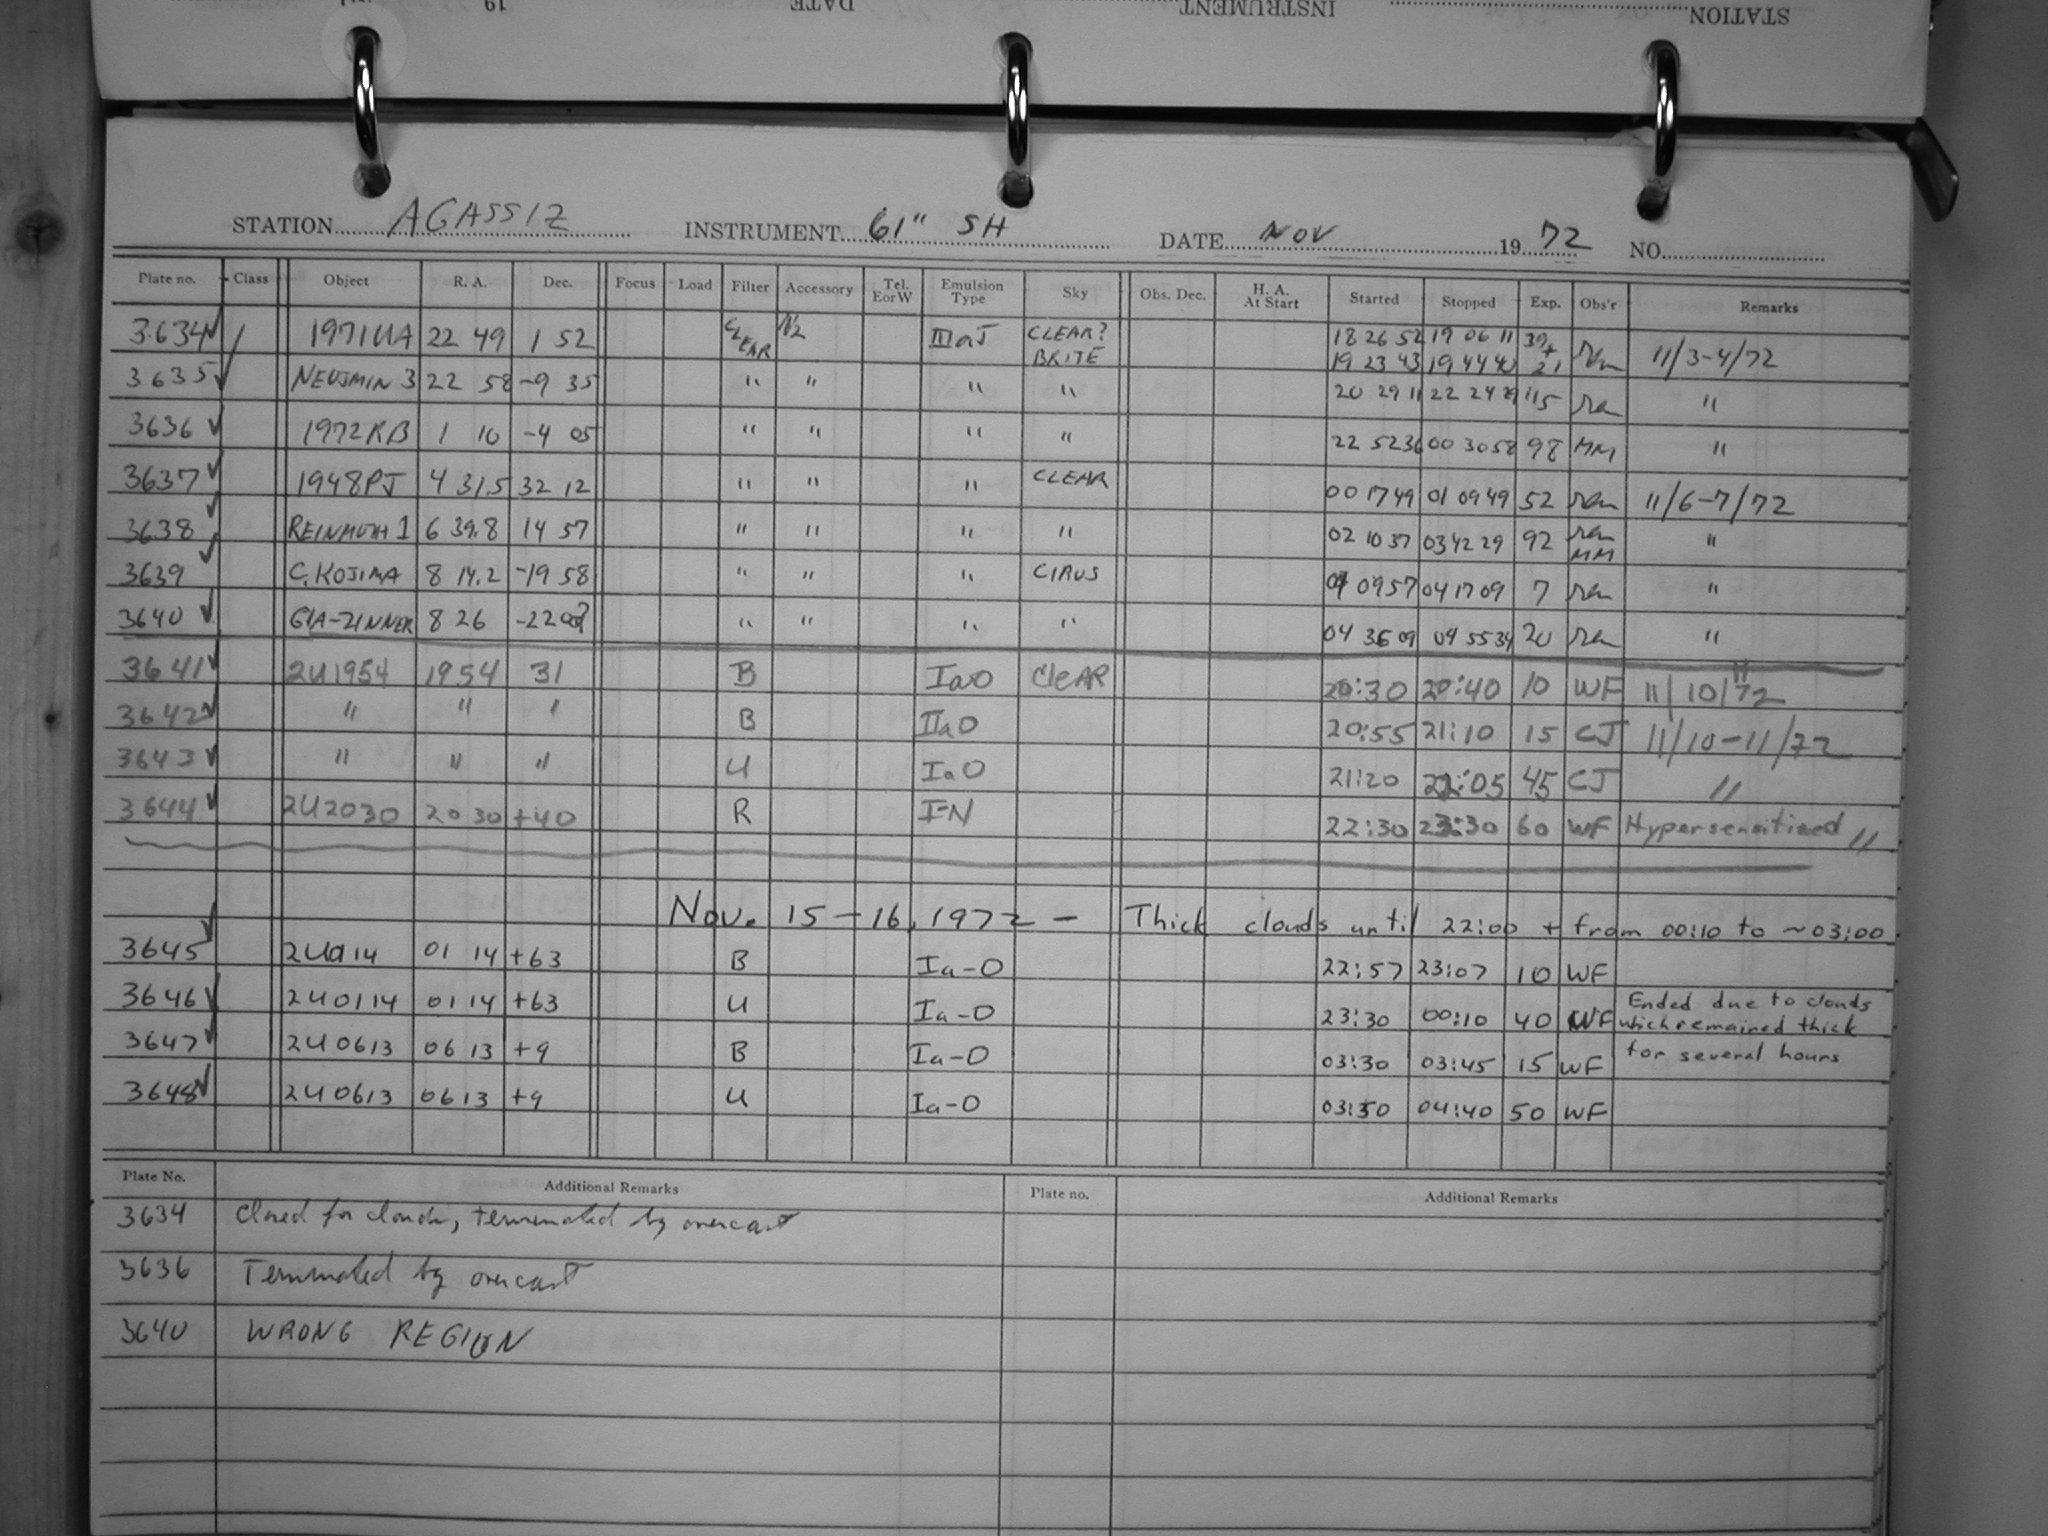 19 DATE INSTRUMENT STATION
STATION AGASSIZ INSTRUMENT 61" SH DATE NOV 1972 NO.
Plate no. Class Object R. A. Dec. Focus Load Filter Accessory Tel. EorW Emulsion Type Sky Obs. Dec. H. A. At Start Started Stopped Exp. Obs'r Remarks
3634 ✓ 1971UA 22 49 1 52 CLEAR N2 IIIaJ CLEAR? BRITE 18 26 52 19 06 11 39+ 11/3-4/72
19 23 43 19 44 42 21
3635 ✓ NEUJMIN 3 22 58 -9 35 " " " " 20 29 11 22 24 115 "
3636 ✓ 1972RB 1 10 -4 05 " " " " 22 52 36 00 30 58 98 MM "
3637 ✓ 1948PJ 4 31.5 32 12 " " " CLEAR 00 17 49 01 09 49 52 11/6-7/72
3638 ✓ REINMUTH 1 6 39.8 14 57 " " " " 02 10 37 03 42 29 92 MM "
3639 ✓ C. KOJIMA 8 14.2 -19 58 " " " CIRUS 04 09 57 04 17 09 7 "
3640 ✓ GIA-ZINNER 8 26 -22 00? " " " " 04 36 09 04 55 34 20 "
3641 ✓ 2U1954 1954 31 B IaO CleAR 20:30 20:40 10 WF 11/10/72
3642 ✓ " " " B IIaO 20:55 21:10 15 CJ 11/10-11/72
3643 ✓ " " " U IaO 21:20 22:05 45 CJ "
3644 ✓ 2U2030 20 30 +40 R I-N 22:30 23:30 60 WF Hypersensitized "
Nov. 15-16, 1972 - Thick clouds until 22:00 + from 00:10 to ~03:00
3645 ✓ 2U0114 01 14 +63 B Ia-O 22:57 23:07 10 WF
3646 ✓ 2U0114 01 14 +63 U Ia-O 23:30 00:10 40 WF Ended due to clouds which remained thick
3647 ✓ 2U0613 06 13 +9 B Ia-O 03:30 03:45 15 WF for several hours
3648 ✓ 2U0613 06 13 +9 U Ia-O 03:50 04:40 50 WF
Plate No. Additional Remarks Plate no. Additional Remarks
3634 Closed for clouds, terminated by overcast
3636 Terminated by overcast
3640 WRONG REGION